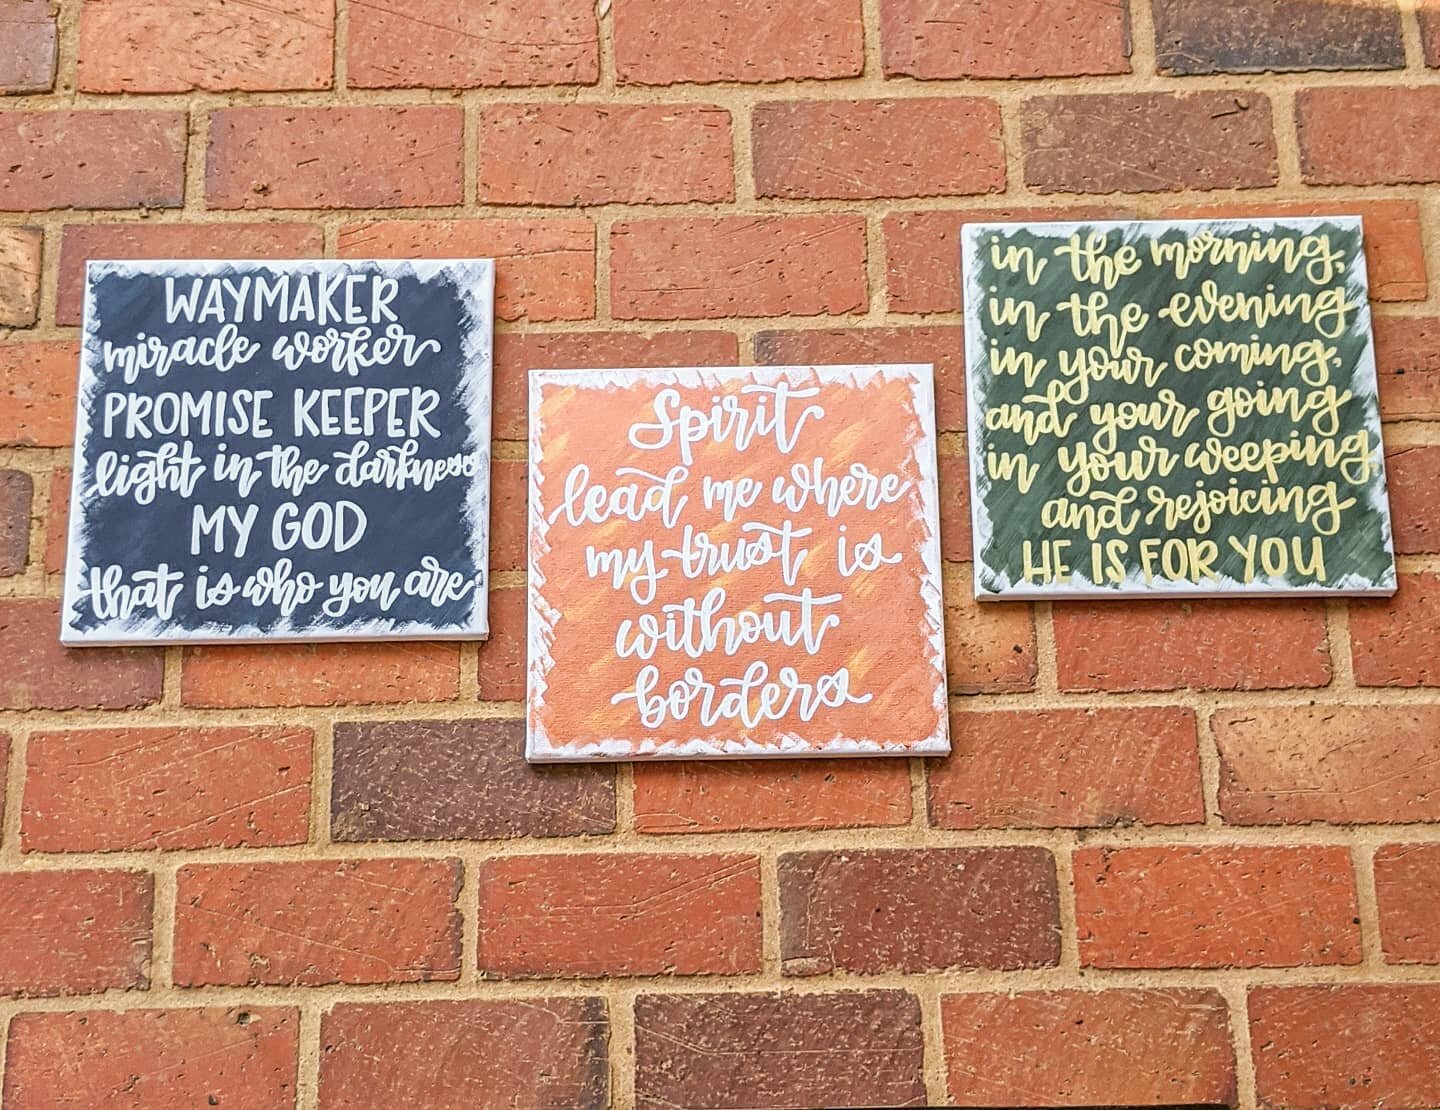 WAYMAKER
miracle worker
PROMISE KEEPER
light in the darkness
MY GOD
that is who you are
Spirit
lead me where
my trust is
without
borders
in the morning,
in the evening
in your coming,
and your going
in your weeping
and rejoicing
HE IS FOR YOU